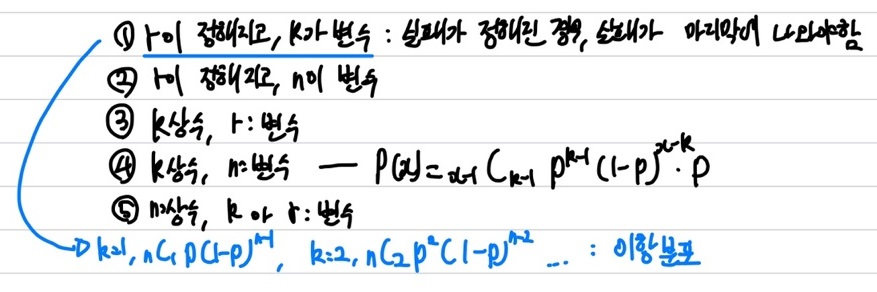 ① r이 정해지고, k가 변수 : 실패가 정해진 경우, 실패가 마지막에 나와야함
② r이 정해지고, n이 변수
③ k상수, r : 변수
④ k상수, n : 변수 — P(x) = x-1 C k-1 p^{k-1} (1-p)^{x-k} · p
⑤ n상수, k or r : 변수
k=1, nC₁ p(1-p)^{n-1}, k=2, nC₂ p²(1-p)^{n-2} ... : 이항분포